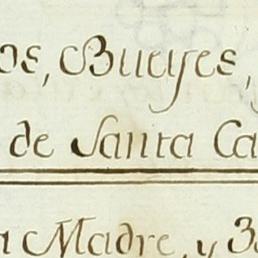 os, Bueyes,
de Santa Ca
a Madre, y 3